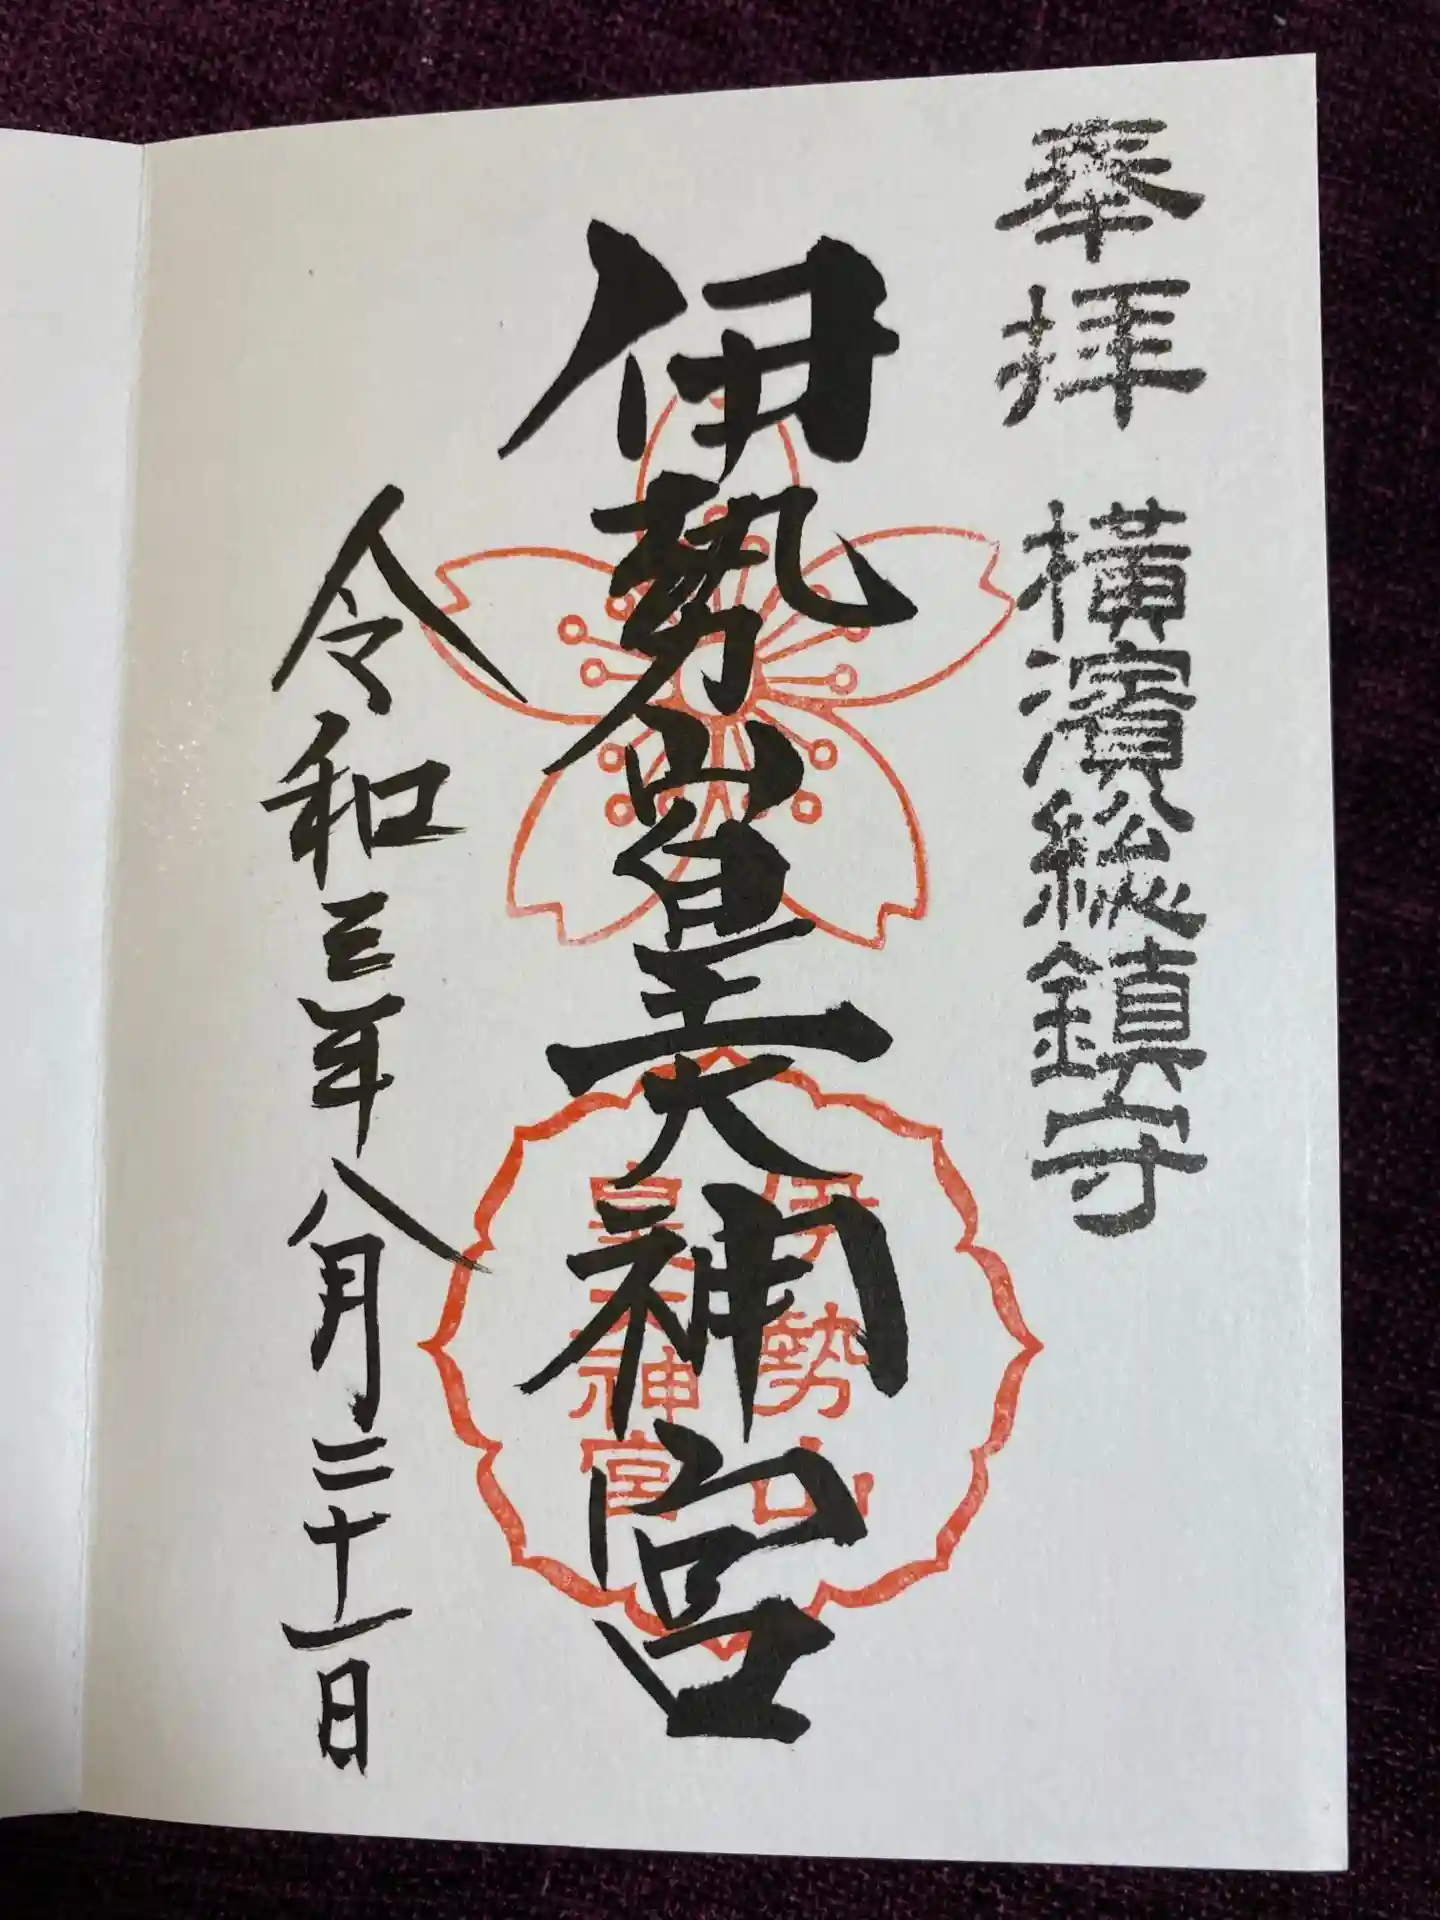 奉拝
横濱総鎮守
伊勢山皇大神宮
伊勢山
皇大神宮
令和三年八月二十一日